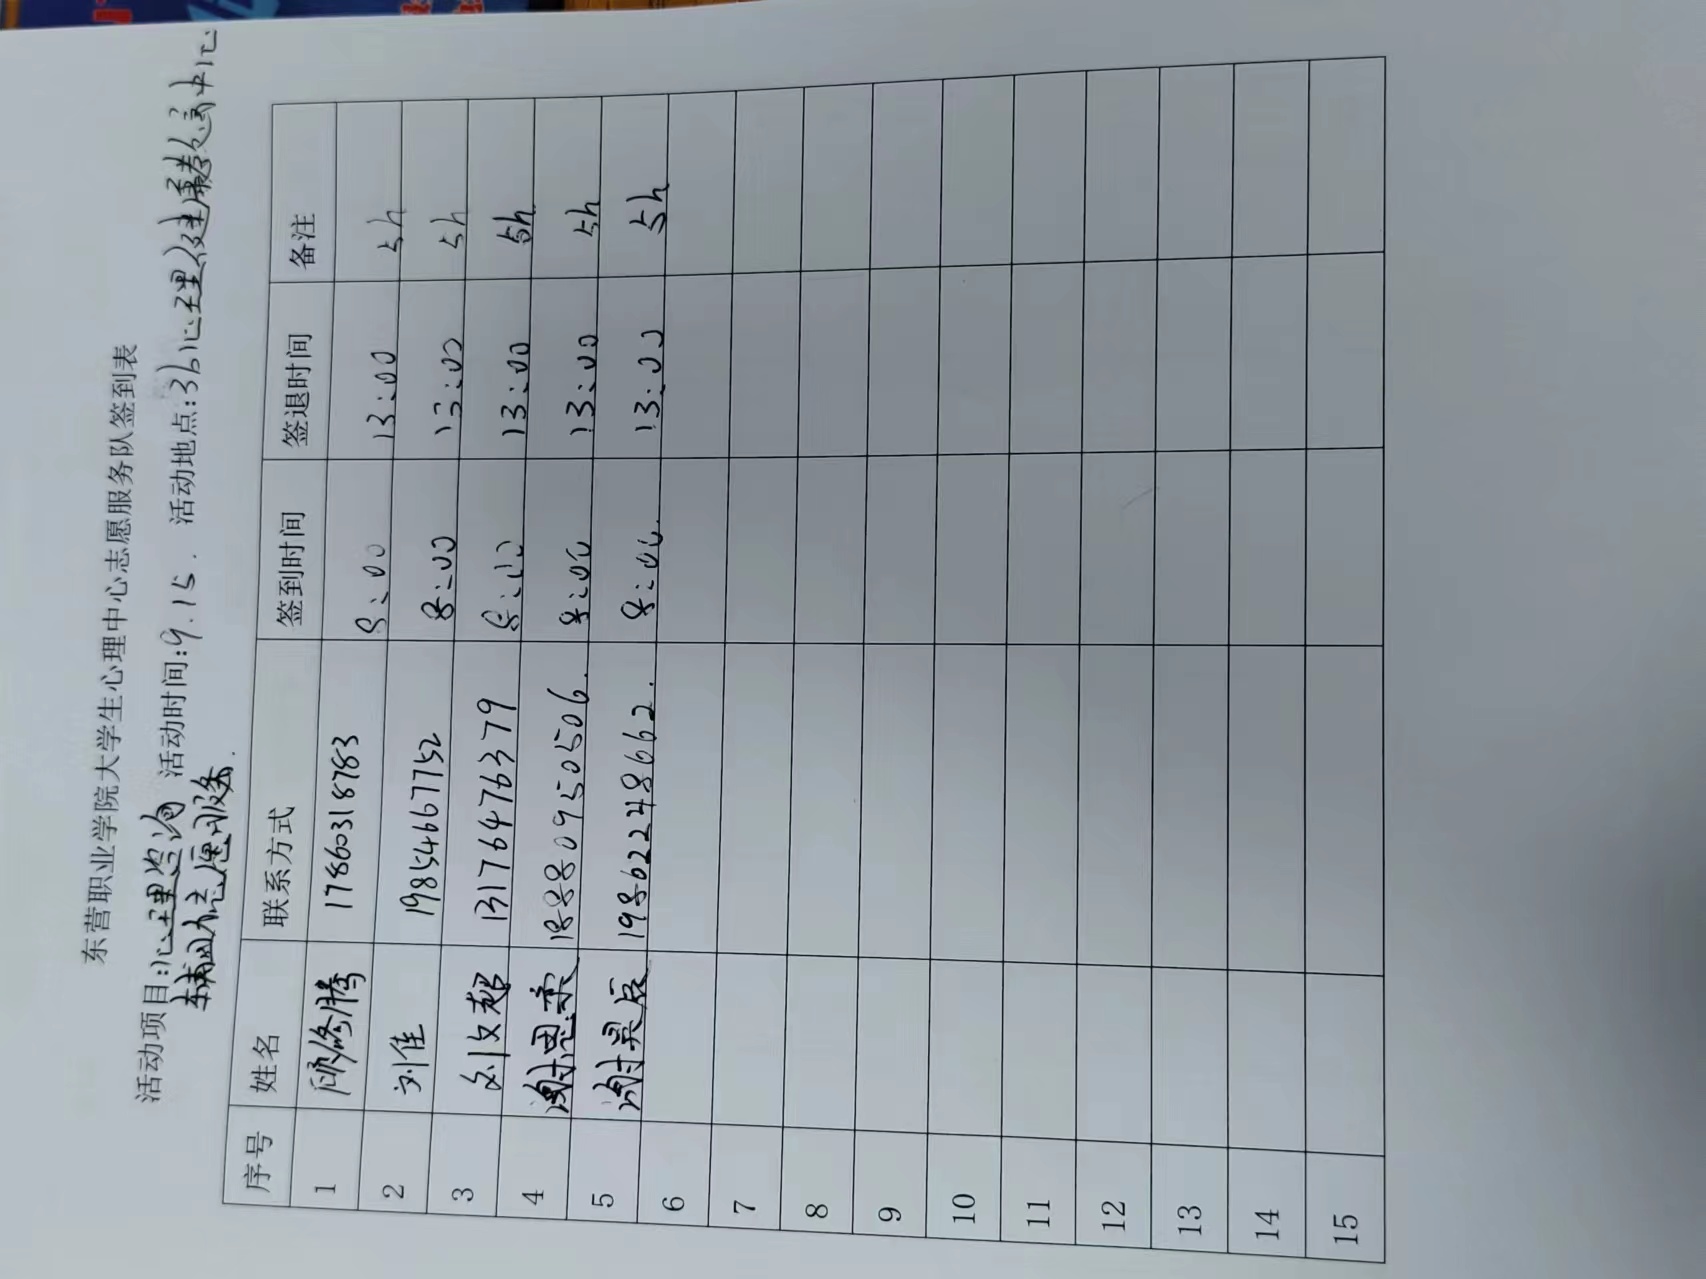 东营职业学院大学生心理中心志愿服务队签到表
活动项目:心理咨询 活动时间:9.15. 活动地点:3b心理健康教育中心
辅助志愿服务.
序号 姓名 联系方式 签到时间 签退时间 备注
1 顾修腾 17860318783 8:00 13:00 5h
2 刘佳 19854667752 8:00 13:00 5h
3 刘文超 13176476379 8:00 13:00 5h
4 谢思雨 18880950506. 8:00 13:00 5h
5 谢昊辰 19862248662. 8:00. 13:00 5h
6
7
8
9
10
11
12
13
14
15